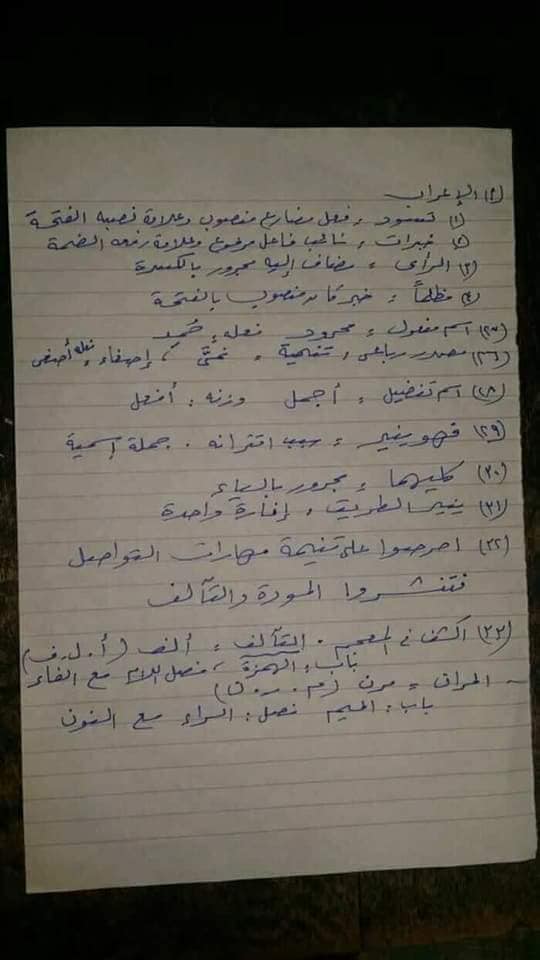 (٢) الإعراب
(١) تسود : فعل مضارع منصوب وعلامة نصبه الفتحة
(٢) خبرات : نائب فاعل مرفوع وعلامة رفعه الضمة
(٣) الرأى : مضاف إليه مجرور بالكسرة
(٤) مظلماً : خبر كان منصوب بالفتحة
(٢٧) اسم مفعول : محمود فعله : حُمِد
مصدر رباعى : تنمية : نمَّى ، إصغاء : فعله أصغى
(٢٨) اسم تفضيل : أجمل وزنه : أفعل
(٢٩) فهو ينير : سبب اقترانه . جملة إسمية
(٣٠) كليهما : مجرور بالياء
(٣١) ينير الطريق : إفارة واحدة
(٣٢) احرصوا على تنيمة مهارات التواصل
فتنشروا المودة والتآلف
(٣٣) اكشف فى المعجم . التآلف : ألف (أ . ل . ف)
باب : الهمزة ، فصل اللام مع الفاء
- المران : مرن (م . ر . ن)
باب : الميم فصل : الراء مع النون